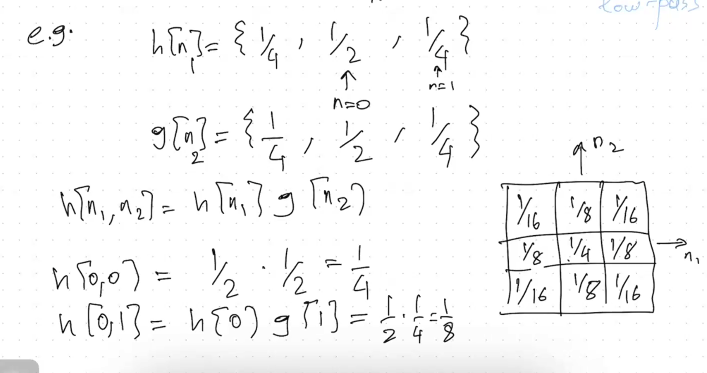 low-pass
e.g. h[n₁] = { 1/4 , 1/2 , 1/4 }
↑ n=0 ↑ n=1
g[n₂] = { 1/4 , 1/2 , 1/4 }
h[n₁,n₂] = h[n₁] g[n₂)
h[0,0) = 1/2 · 1/2 = 1/4
h[0,1] = h[0) g[1] = 1/2 · 1/4 = 1/8
n₂
1/16 1/8 1/16
1/8 1/4 1/8
n₁
1/16 1/8 1/16